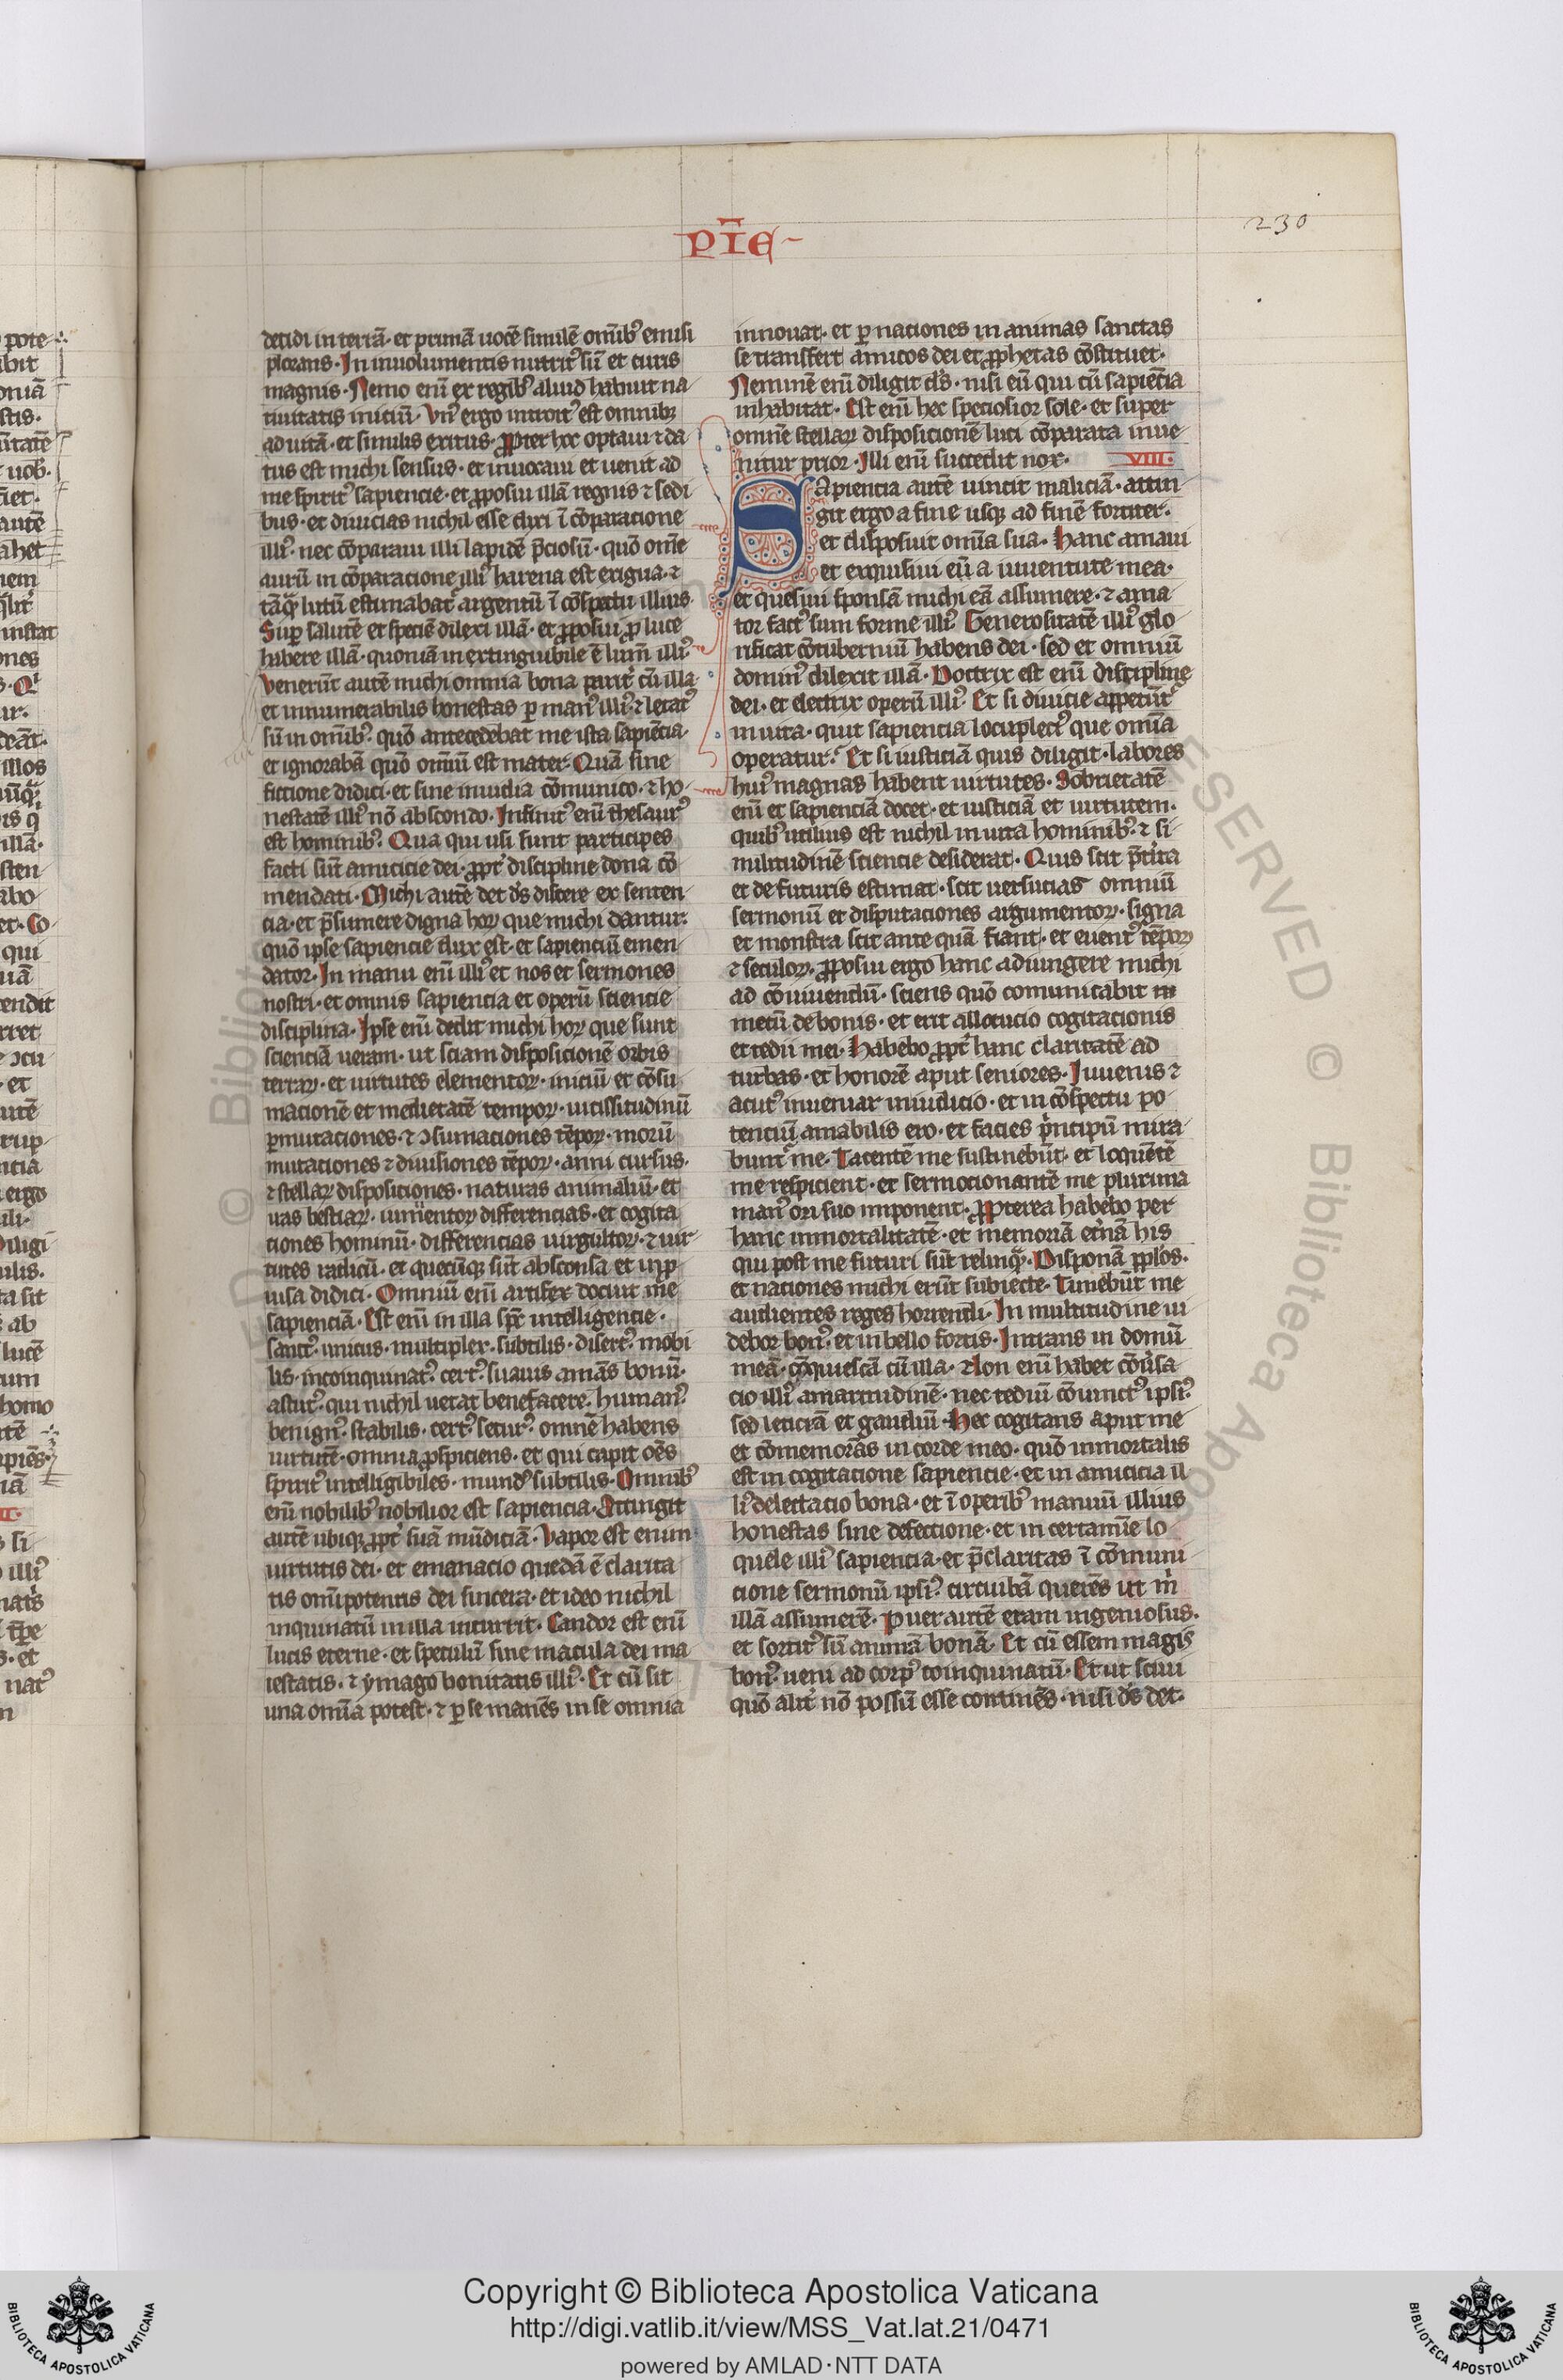 PIE
230
decidi in terrā· et primā uocē similē omībꝰ emisi
plorans· In inuolumentis nutritꝰ sū et curis
magnis· Nemo enī ex regibꝰ aliud habuit na
tiuitatis iniciū· Vnꝰ ergo introitꝰ est omnibꝫ
ad uitā· et similis exitus· ꝓpter hoc optaui ⁊ da
tus est michi sensus· et inuocaui et uenit ad
me spiritꝰ sapiencie· et ꝓposui illā regnis ⁊ sedi
bus· et diuicias nichil esse duxi ī cōparacione
illiꝰ· nec cōparaui illi lapidē p̄ciosū· quō om̄e
aurū in cōparacione illiꝰ harena est exigua· ⁊
tāq̄ lutū estimabat᷑ argentū ī cōspectu illius·
Suꝑ salutē et speciē dilexi illā· et ꝓposui ꝓ luce
habere illā· quoniā inextinguibile ē lum̄ illiꝰ
Venerūt autē michi omnia bona parit᷑ cū illa
et innumerabilis honestas ꝑ manꝰ illiꝰ· ⁊ letatꝰ
sū in omībꝰ· quō antecedebat me ista sapiēcia·
et ignorabā quō omniū est mater· Quā sine
fictione didici· et sine inuidia cōmunico· ⁊ ho
nestatē illiꝰ nō abscondo· Infinitꝰ enī thesaurꝰ
est hominibꝰ· Qua qui usi sunt participes
facti sūt amicicie dei· ꝓpt᷑ discipline dona cō
mendati· Michi autē det dꝰs dicere ex senten
cia· et p̄sumere digna hoꝝ que michi dantur·
quō ipse sapiencie dux est· et sapienciū emen
dator· In manu enī illiꝰ et nos et sermones
nostri· et omnis sapiencia et operū sciencie
disciplina· Ipse enī dedit michi hoꝝ que sunt
scienciā ueram· ut sciam disposicionē orbis
terraꝝ· et uirtutes elementoꝝ· iniciū et cōsu
macionē et medietatē tempoꝝ· uicissitudinū
ꝑmutaciones· ⁊ ꝯsumaciones tēpoꝝ· morū
mutaciones ⁊ diuisiones tēpoꝝ· anni cursus·
⁊ stellaꝝ disposiciones· naturas animaliū· et
uas bestiaꝝ· iumentoꝝ differencias· et cogita
ciones hominū· differencias uirgultoꝝ· ⁊ uir
tutes radicū· et quecūqꝫ sūt absconsa et inꝓ
uisa didici· Omniū enī artifex docuit me
sapienciā· Est enī in illa sp̄c intelligencie·
sanctꝰ· unicus· multiplex· subtilis· disertꝰ· mobi
lis· incoinquinatꝰ· certꝰ· suauis amās bonū·
astutꝰ· qui nichil uetat benefacere· humanꝰ·
benignꝰ· stabilis· certꝰ· securꝰ· omnē habens
uirtutē· omnia ꝓspiciens· et qui capit oēs
spiritꝰ intelligibiles· mundꝰ subtilis· Omnibꝰ
enī nobilibꝰ nobilior est sapiencia· Attingit
autē ubiqꝫ ꝓpt᷑ suā mūdiciā· Vapor est enim
uirtutis dei· et emanacio quedā ē clarita
tis omīpotentis dei sincera· et ideo nichil
inquinatū in illa incurrit· Candor est enī
lucis eterne· et speculū sine macula dei ma
iestatis· ⁊ ymago bonitatis illiꝰ· Et cū sit
una omīa potest· ⁊ ꝑ se manēs in se omnia
innouat· et ꝑ naciones in animas sanctas
se transfert amicos dei et ꝓphetas cōstituet·
Neminē enī diligit dꝰs· nisi eū qui cū sapiēcia
inhabitat· Est enī hec speciosior sole· et super
omnē stellaꝝ disposicionē luci cōparata inue
nitur prior· Illi enī succedit nox· VIII·
Sapiencia autē uincit maliciā· attin
git ergo a fine usqꝫ ad finē fortiter·
et disposuit omīa sua· Hanc amaui
et exquisiui eū a iuuentute mea·
et quesiui sponsā michi eā assumere· ⁊ ama
tor factꝰ sum forme illiꝰ· Generositatē illiꝰ glo
rificat cōtuberniū habens dei· sed et omniū
dominꝰ dilexit illā· Doctrix est enī discipline
dei· et electrix operū illiꝰ· Et si diuicie appetūt᷑
in uita· quit sapiencia locupleciꝰ que omīa
operatur· Et si iusticiā quis diligit· labores
huiꝰ magnas habent uirtutes· Sobrietatē
enī et sapienciā docet· et iusticiā et uirtutem·
quibꝰ utilius est nichil in uita hominibꝰ· ⁊ si
militudinē sciencie desiderat· Quis scit p̄t᷑ita
et de futuris estimat· scit uersucias omniū
sermonū et disputaciones argumentoꝝ· signa
et monstra scit ante quā fiant· et euentꝰ tēpoꝝ
⁊ seculoꝝ· ꝓposui ergo hanc adiungere michi
ad cōuiuendū· sciens quō comunicabit m
mecū de bonis· et erit allocucio cogitacionis
et tedii mei· Habebo ꝓpt᷑ hanc claritatē ad
turbas· et honorē aput seniores· Iuuenis ⁊
acutꝰ inueniar in iudicio· et in cōspectu po
tenciū amabilis ero· et facies p̄ncipū mira
bunt᷑ me· Tacentē me sustinebūt· et loquētē
me respicient· et sermocionantē me plurima
manꝰ ori suo imponent· ꝓpterea habebo per
hanc inmortalitatē· et memoriā et᷑nā his
qui post me futuri sūt relinq̄· Disponā ꝓplos·
et naciones michi erūt subiecte· Timebūt me
audientes reges horrendi· In multitudine ui
debor bonꝰ· et in bello fortis· Intrans in domū
meā· cōquiescā cū illa· Non enī habet cōūsa
cio illiꝰ amaritudinē· nec tediū cōuinctꝰ ipsiꝰ·
sed leticiā et gaudiū· Hec cogitans aput me
et cōmemorās in corde meo· quō inmortalis
est in cogitacione sapiencie· et in amicicia il
liꝰ delectacio bona· et ī operibꝰ manuū illius
honestas sine defectione· et in certamīe lo
quele illiꝰ sapiencia· et p̄claritas ī cōmuni
cione sermonū ipsiꝰ· circuibā querēs ut m̄
illā assumerē· Puer autē eram ingeniosus·
et sortitꝰ sū animā bonā· Et cū essem magis
bonꝰ· ueni ad corpꝰ coinquinatū· Et ut sciui
quō alit᷑ nō possū esse continēs· nisi dꝰs det·
Copyright © Biblioteca Apostolica Vaticana
http://digi.vatlib.it/view/MSS_Vat.lat.21/0471
powered by AMLAD·NTT DATA
BIBLIOTECA APOSTOLICA VATICANA
BIBLIOTECA APOSTOLICA VATICANA